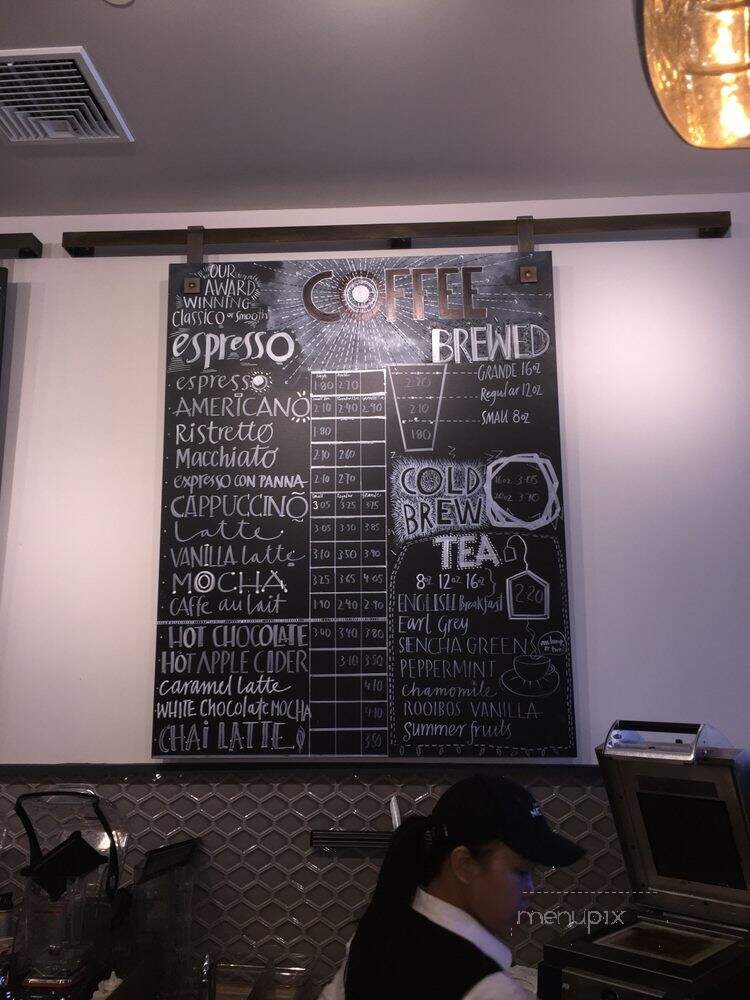 OUR
AWARD
WINNING
Classico or Smooth
COFFEE
espresso
espresso 1.80 2.70
AMERICANO 2.10 2.40 2.90
Ristretto 1.80
Macchiato 2.10 2.60
espresso con PANNA 2.10 2.70
Small Regular Grande
CAPPUCCINO 3.05 3.25 3.75
Latte 3.05 3.30 3.85
VANILLA Latte 3.10 3.50 3.90
MOCHA 3.25 3.65 4.05
Caffe au lait 1.90 2.40 2.90
HOT CHOCOLATE 3.00 3.40 3.80
HOT APPLE CIDER 3.10 3.50
caramel latte 4.10
WHITE CHOCOLATE MOCHA 4.10
CHAI LATTE 3.50
BREWED
GRANDE 16oz
Regular 12oz 2.10
SMALL 8oz 1.80
COLD
BREW
16oz 3.05
20oz
TEA
8oz 12oz 16oz
2.20
ENGLISH Breakfast
Earl Grey
SENCHA GREEN
PEPPERMINT
chamomile
ROOIBOS VANILLA
Summer fruits
menupix